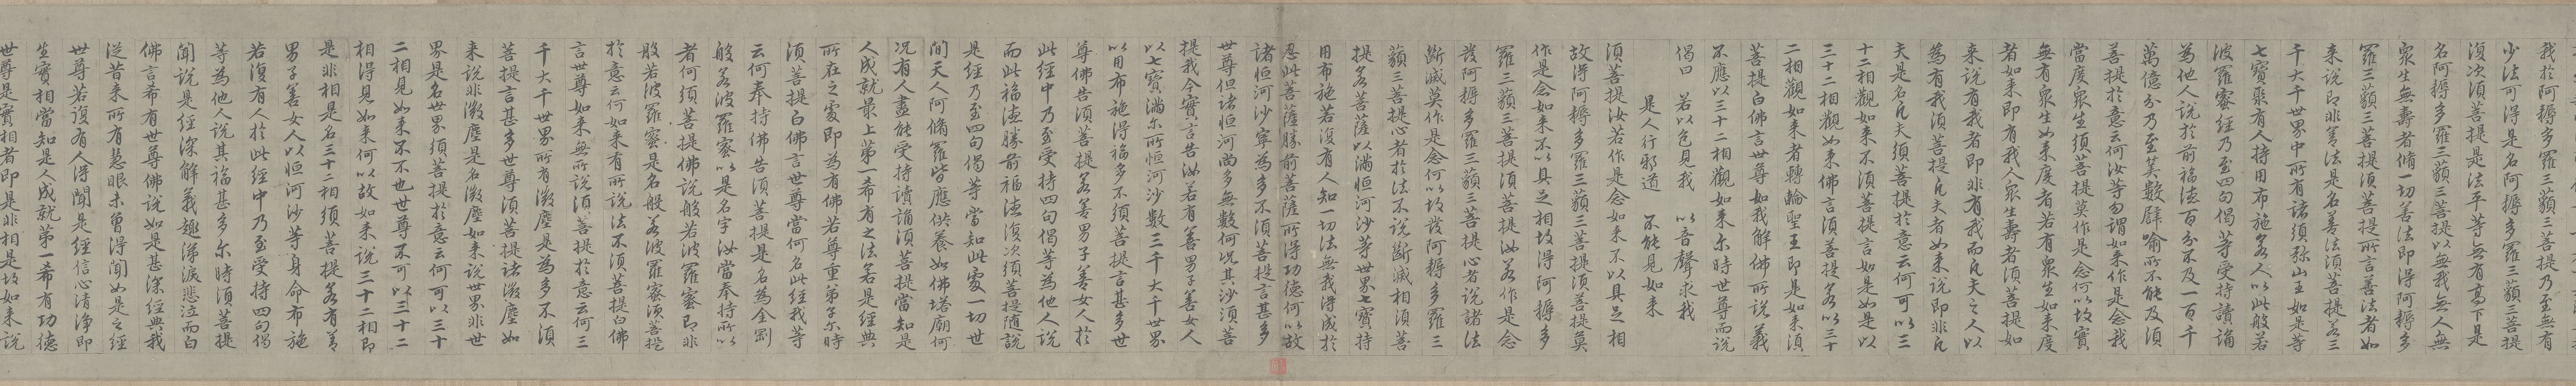 我於阿耨多羅三藐三菩提乃至無有
少法可得是名阿耨多羅三藐三菩提
復次須菩提是法平等無有高下是
名阿耨多羅三藐三菩提以無我無人無
眾生無壽者脩一切善法即得阿耨多
羅三藐三菩提須菩提所言善法者如
來說即非善法是名善法須菩提若三
千大千世界中所有諸須弥山王如是等
七寶聚有人持用布施若人以此般若
波羅蜜經乃至四句偈等受持讀誦
為他人說於前福德百分不及一百千
萬億分乃至筭數譬喻所不能及須
菩提於意云何汝等勿謂如來作是念我
當度眾生須菩提莫作是念何以故實
無有眾生如來度者若有眾生如來度
者如來即有我人眾生壽者須菩提如
來說有我者即非有我而凡夫之人以
為有我須菩提凡夫者如來說即非凡
夫是名凡夫須菩提於意云何可以三
十二相觀如來不須菩提言如是如是以
三十二相觀如來佛言須菩提若以三十
二相觀如來者轉輪聖王即是如來須
菩提白佛言世尊如我解佛所說義
不應以三十二相觀如來尒時世尊而說
偈曰 若以色見我 以音聲求我
是人行邪道 不能見如來
須菩提汝若作是念如來不以具足相
故得阿耨多羅三藐三菩提須菩提莫
作是念如來不以具足相故得阿耨多
羅三藐三菩提須菩提汝若作是念
發阿耨多羅三藐三菩提心者說諸法
斷滅莫作是念何以故發阿耨多羅三
藐三菩提心者於法不說斷滅相須菩
提若菩薩以滿恒河沙等世界七寶持
用布施若復有人知一切法無我得成於
忍此菩薩勝前菩薩所得功德何以故
諸恒河沙寧為多不須菩提言甚多
世尊但諸恒河尚多無數何況其沙須菩
提我今實言告汝若有善男子善女人
以七寶滿尒所恒河沙數三千大千世界
以用布施得福多不須菩提言甚多世
尊佛告須菩提若善男子善女人於
此經中乃至受持四句偈等為他人說
而此福德勝前福德復次須菩提隨說
是經乃至四句偈等當知此處一切世
間天人阿脩羅皆應供養如佛塔廟何
況有人盡能受持讀誦須菩提當知是
人成就最上第一希有之法若是經典
所在之處即為有佛若尊重弟子尒時
須菩提白佛言世尊當何名此經我等
云何奉持佛告須菩提是名為金剛
般若波羅蜜以是名字汝當奉持所以
者何須菩提佛說般若波羅蜜即非
般若波羅蜜是名般若波羅蜜須菩提
於意云何如來有所說法不須菩提白佛
言世尊如來無所說須菩提於意云何三
千大千世界所有微塵是為多不須
菩提言甚多世尊須菩提諸微塵如
來說非微塵是名微塵如來說世界非世
界是名世界須菩提於意云何可以三十
二相見如來不不也世尊不可以三十二
相得見如來何以故如來說三十二相即
是非相是名三十二相須菩提若有善
男子善女人以恒河沙等身命布施
若復有人於此經中乃至受持四句偈
等為他人說其福甚多尒時須菩提
聞說是經深解義趣涕淚悲泣而白
佛言希有世尊佛說如是甚深經典我
從昔來所有慧眼未曾得聞如是之經
世尊若復有人得聞是經信心清淨即
生實相當知是人成就第一希有功德
世尊是實相者即是非相是故如來說